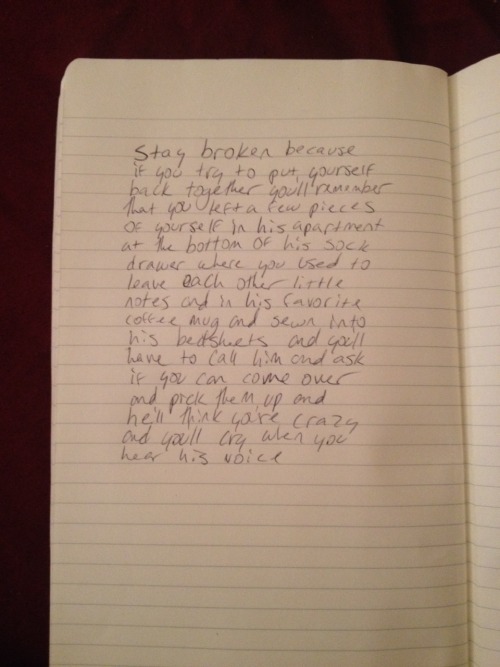 Stay broken because
if you try to put yourself
back together you'll remember
that you left a few pieces
of yourself in his apartment
at the bottom of his sock
drawer where you used to
leave each other little
notes and in his favorite
coffee mug and sewn into
his bedsheets and you'll
have to call him and ask
if you can come over
and pick them up and
he'll think you're crazy
and you'll cry when you
hear his voice